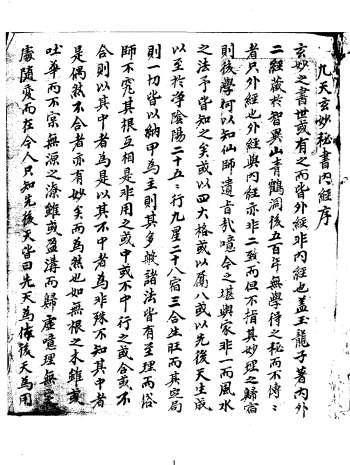 九天玄妙秘書內經序
玄妙之書世或有之而皆外經非內經也蓋玉龍子著內外
二經藏於智異山青鶴洞後五百年無學得之秘而不傳
者只外經也外經與內經亦非二致而但不指其妙理之歸宿
則後學何以知仙師遺旨哉噫今之堪輿家非一而風水
之法予皆知之矣或以四大格或以属八或以先後天生成
以至於淨陰陽二十五二行九星二十八宿三合生旺而其
則一切皆以納甲為主則其多般諸法皆有至理而俗
師不究其根互相是非用之或中或不中行之或合或不
合則以其中者為是以其不中者為非殊不知其中者
是偶然不合者亦有妙矣而為然也如無根之木雖或
吐華而不宗無源之滌雖或盈溝而歸虛噫理無
處隨處而在今人只知先後天皆曰先天為体後天為用
1